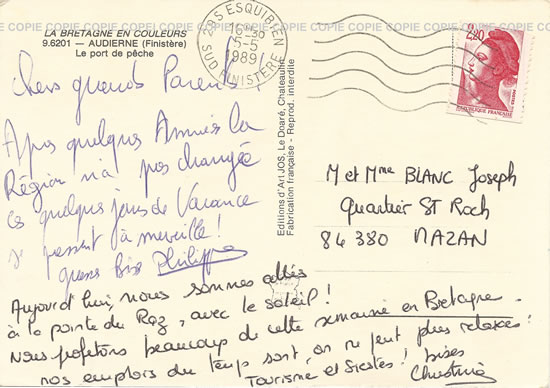 COPIE COPIE COPIE COPIE COPIE COPIE COPIE COPIE COPIE COPIE COPIE
LA BRETAGNE EN COULEURS
9.6201 — AUDIERNE (Finistère)
Le port de pêche
29S ESQUIBIEN
16H30
5-5
1989
SUD FINISTERE
2,20
REPUBLIQUE FRANÇAISE
Chers grands Parents,
Apres quelques Années la
Région n'a pas changée
Ces quelques jours de Vacance
s'passent à merveille!
Philippe
Editions d'Art JOS, Le Doaré, Chateaulin
Fabrication française - Reprod. interdite
M et Mme BLANC Joseph
Quartier ST Roch
84380 MAZAN
Aujourd'hui, nous sommes allés
à la pointe du Raz, avec le soleil!
Nous profitons beaucoup de cette semaine en Bretagne.
nos emplois du temps sont, on ne peut plus relaxes:
Tourisme et Siestes! bises
Christine